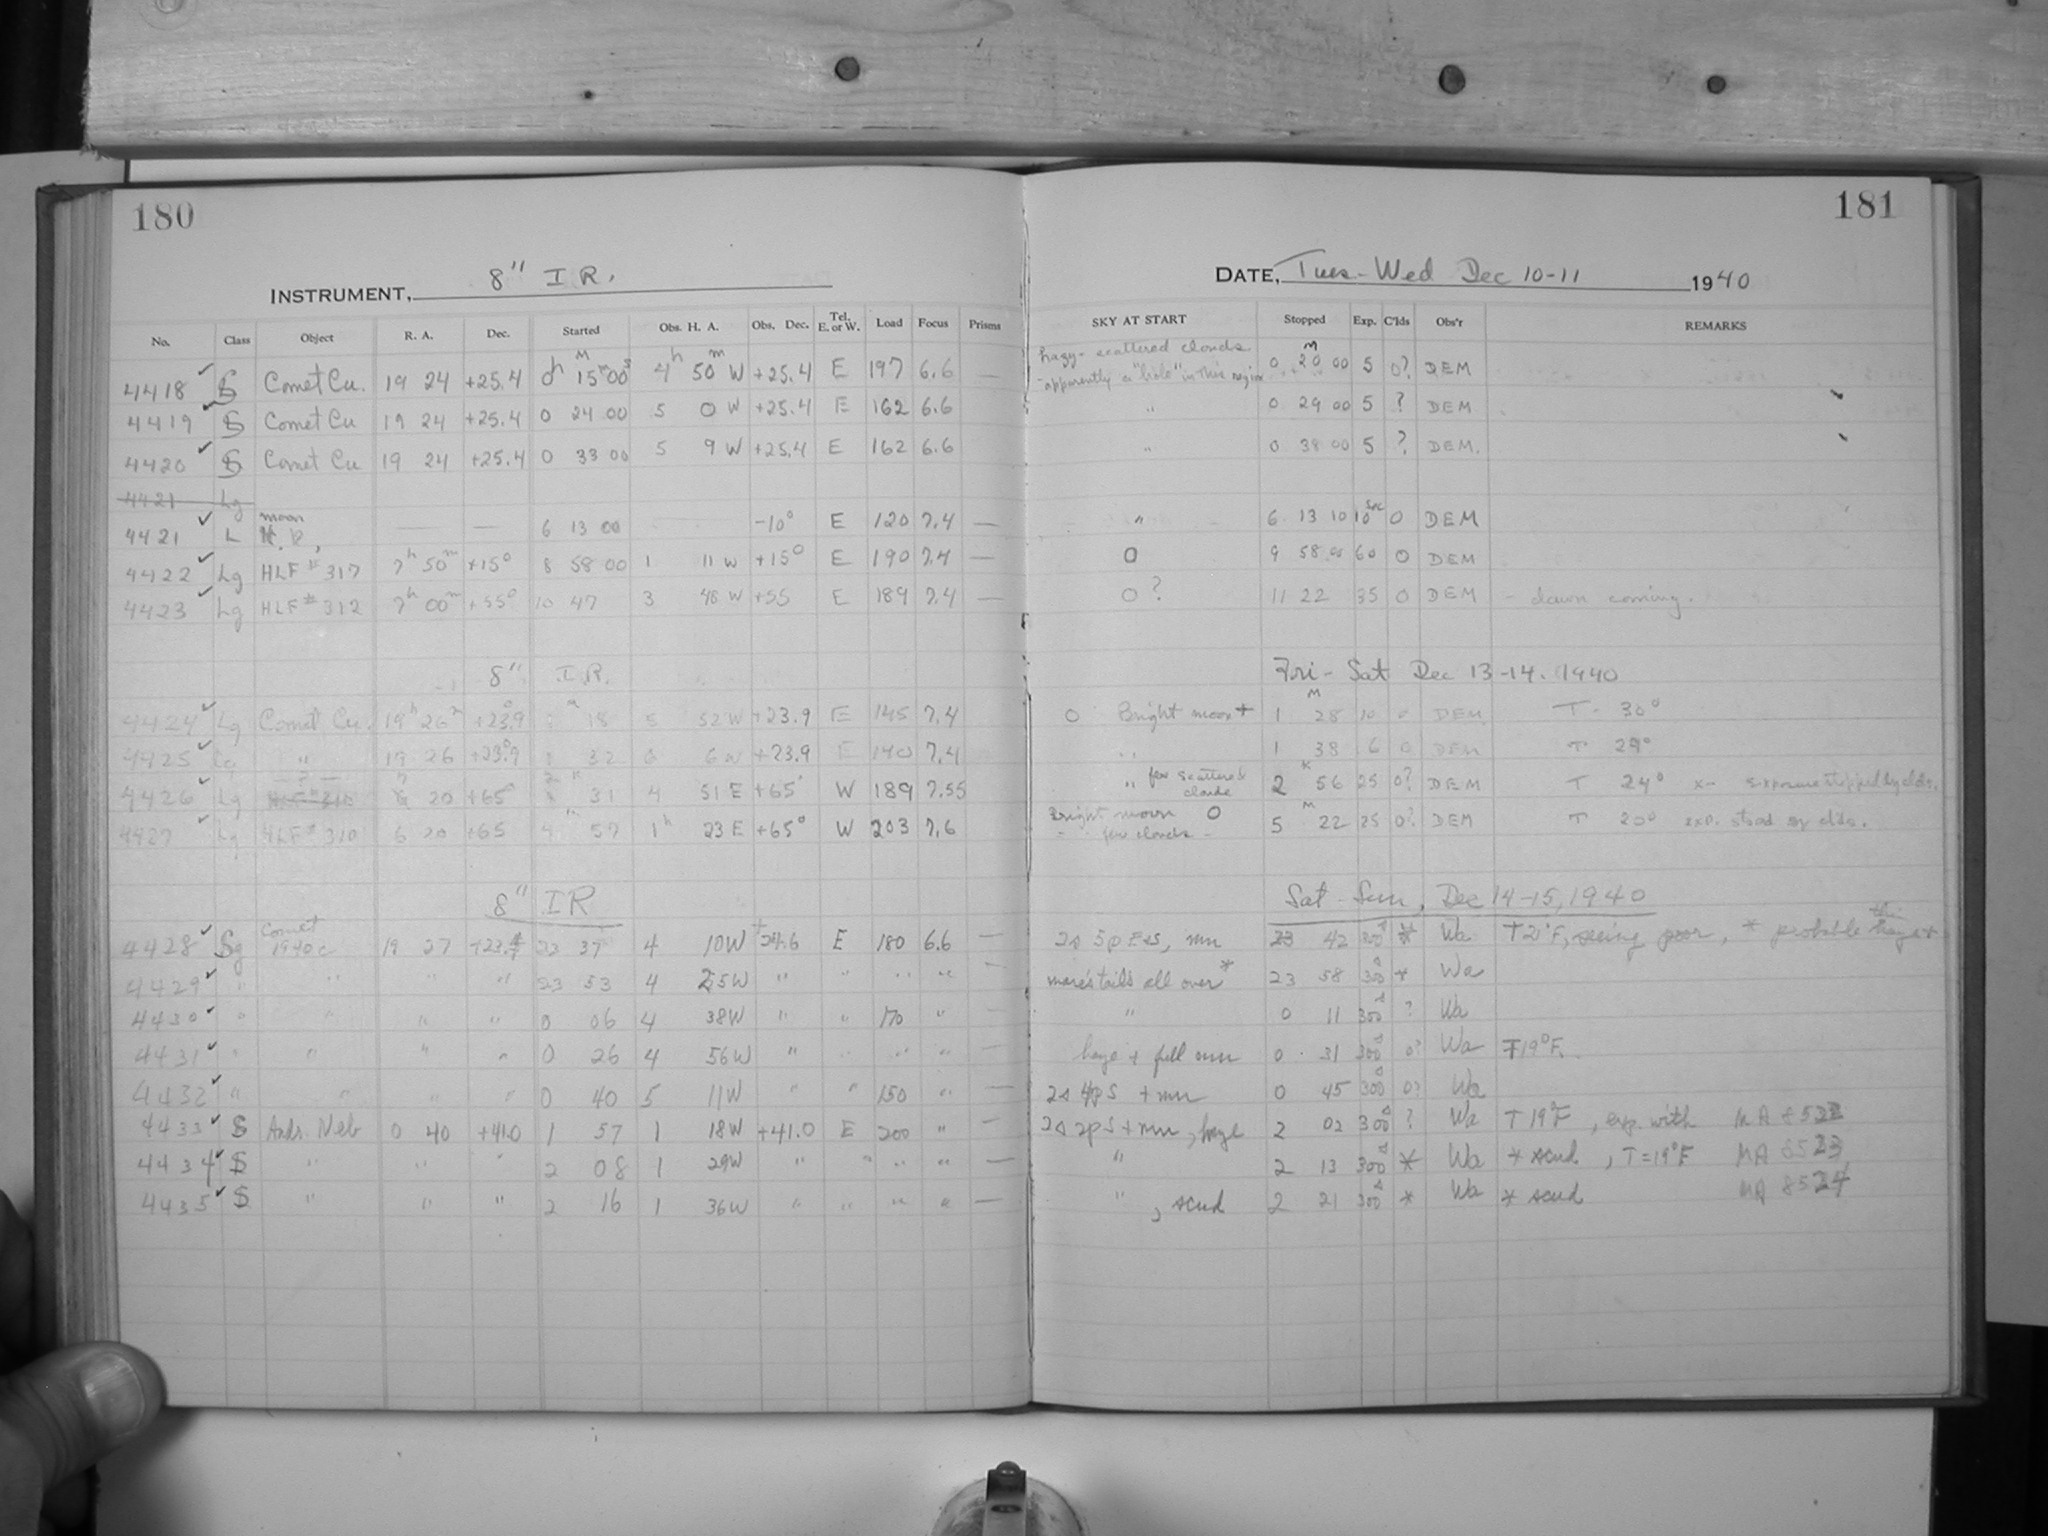 180
INSTRUMENT, 8" I R.
No. Class Object R. A. Dec. Started Obs. H. A. Obs. Dec. Tel. E. or W. Load Focus Prisms
4418 S Comet Cu. 19 24 +25.4 0h 15m 00s 4h 50m W +25.4 E 197 6.6 —
4419 S Comet Cu 19 24 +25.4 0 24 00 5 0 W +25.4 E 162 6.6
4420 S Comet Cu 19 24 +25.4 0 33 00 5 9 W +25.4 E 162 6.6
4421 Lg
4421 L moon — — 6 13 00 -10° E 120 7.4 —
4422 Lg HLF # 317 7h 50m +15° 8 58 00 1 11 W +15° E 190 7.4 —
4423 Lg HLF # 312 7h 00m +55° 10 47 3 48 W +55 E 189 7.4 —
8" I.R.
4424 Lg Comet Cu. 19h 26m +23.9 18 5 52 W +23.9 E 145 7.4
4425 Lg " 19 26 +23.9 32 6 6 W +23.9 E 140 7.4
4426 Lg HLF # 310 20 +65 31 4 51 E +65° W 189 7.55
4427 Lg HLF # 310 6 20 +65 4 57 1h 23 E +65° W 203 7.6
8" IR
4428 Sg Comet 1940c 19 27 23 37 4 10 W +24.6 E 180 6.6 —
4429 " " " " 23 53 4 25 W " " " " —
4430 " " " " 0 06 4 38 W " " 170 "
4431 " " " " 0 26 4 56 W " " " " —
4432 " " " " 0 40 5 11 W " " 150 " —
4433 S Andr. Neb 0 40 +41.0 1 57 1 18 W +41.0 E 200 " —
4434 S " " " 2 08 1 29 W " " " " —
4435 S " " " 2 16 1 36 W " " " " —
181
DATE, Tues - Wed Dec 10-11 1940
SKY AT START Stopped Exp. C'lds Obs'r REMARKS
hazy - scattered clouds
- apparently a "hole" in this region 0 20 00 5 0? DEM
" 0 29 00 5 ? DEM
" 0 38 00 5 ? DEM.
" 6 13 10 10sec 0 DEM
0 9 58 00 60 0 DEM
0? 11 22 35 0 DEM - dawn coming.
Fri - Sat Dec 13-14. 1940
0 Bright moon + 1 28 10 0 DEM T - 30°
" 1 38 6 0 DEM T 29°
" few scattered clouds 2 56 25 0? DEM T 24° x- exposure stopped by clds.
Bright moon 0
- few clouds - 5 22 25 0? DEM T 20° exp. stopd by clds.
Sat - Sun, Dec 14-15, 1940
2s 5p E+S, mn 23 42 300s * Wa seeing poor, * probable thin haze +
mare's tails all over * 23 58 300s * Wa
" 0 11 300s ? Wa
haze + full mn 0 31 300s 0? Wa T 19°F.
2s 4p S + mn 0 45 300s 0? Wa
2s 2p S + mn, haze 2 02 300s ? Wa T 19°F, exp. with MA 8522
" 2 13 300s * Wa * scud, T=19°F MA 8523
" , scud 2 21 300s * Wa * scud MA 8524